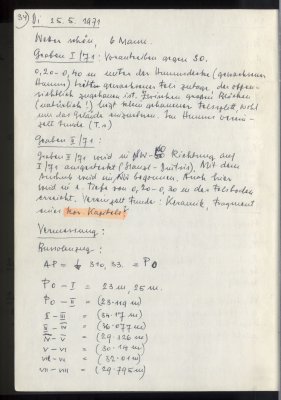 34) Di 25.5.1971
Wetter schön, 6 Mann.
Graben I/71: Vorantreiben gegen SO.
0,20-0,40 m unter der Humusdecke (gewachsener
Humus) treten gewachsener Fels zutage, der offen-
sichtlich zugehauen ist. Zwischen großen Blöcken
(natürlich!) liegt klein gehauener Felssplitt wohl
um das Gelände einzuebnen. Im Humus verein-
zelt Funde (T. 1)
Graben II/71:
Graben II/71 wird in NW-SO Richtung auf
I/71 ausgesteckt. Mit dem
wird im NW begonnen. Auch hier
wird in 1. Tiefe von 0,20-0,30 m der Felsboden
erreicht. Vereinzelt Funde: Keramik, Fragment
eines kor. Kapitells
Vermessung:
Bussolenzug:
AP = 310, 33. = P0
P0 - I = 23 m, 25 m.
P0 - II = (23.119 m)
II - III = (34.17 m)
III - IV = (36.077 m)
IV - V = (29.126 m)
V - VI = (30.14 m)
VI - VII = (32.01 m)
VII - VIII = (29.795 m)